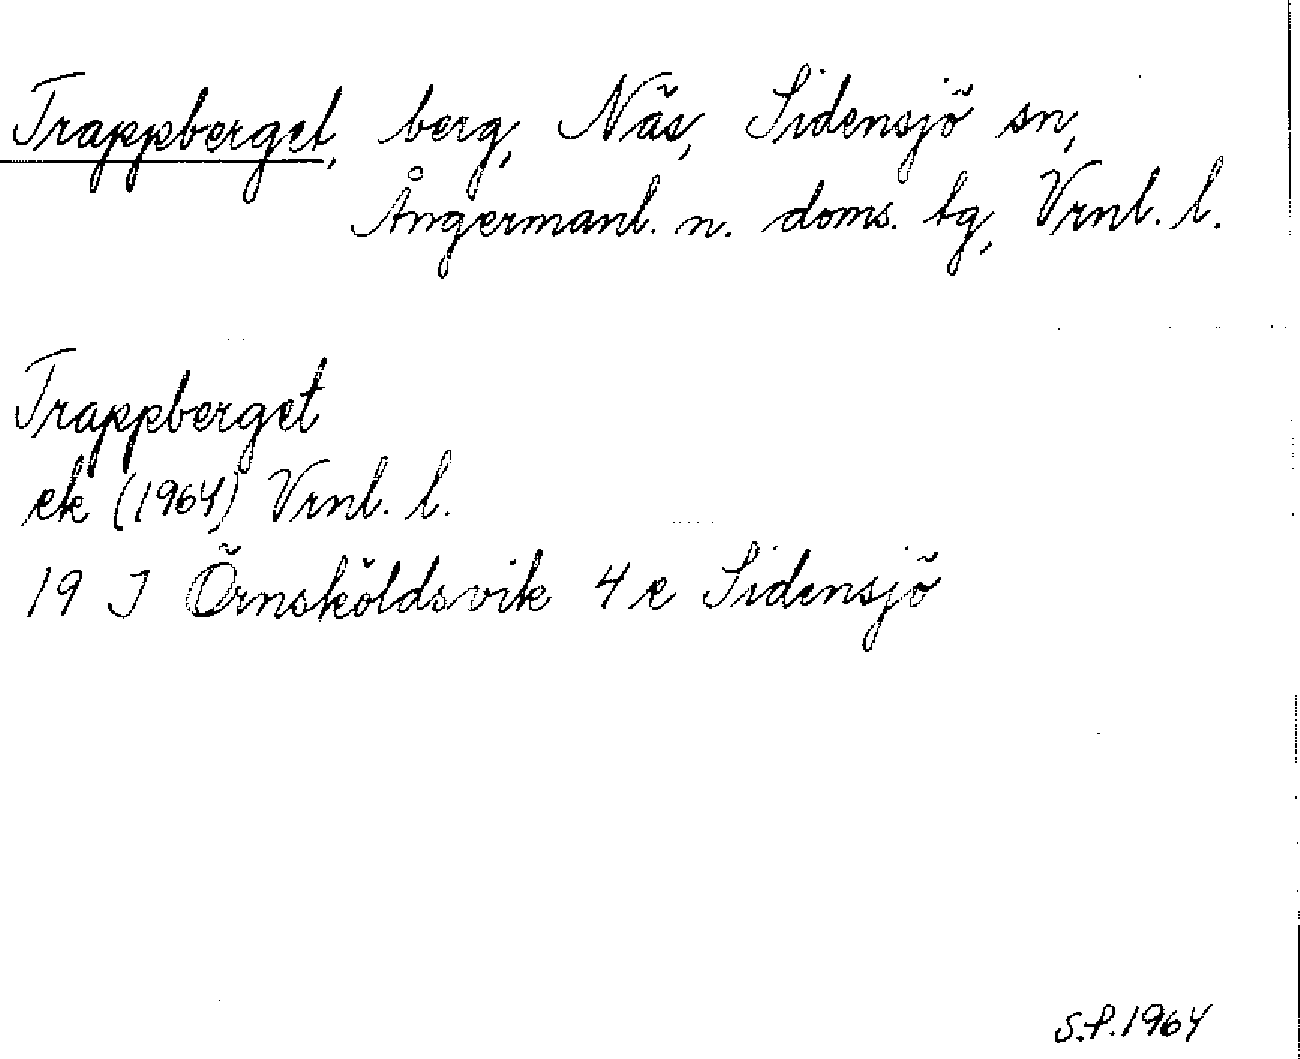 Trappberget, berg, Näs, Sidensjö sn,
Ångermanl. n. doms. tg, Vrnl. l.
Trappberget
ek (1964) Vrnl. l.
19 J Örnsköldsvik 4 e Sidensjö
S.P. 1964